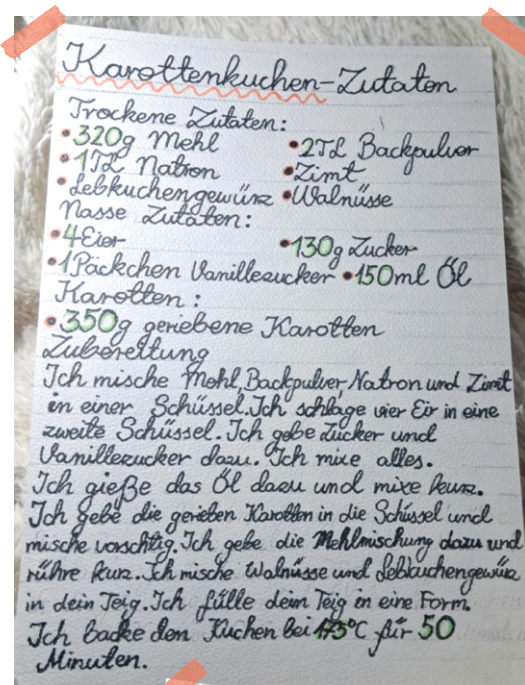 Karottenkuchen-Zutaten
Trockene Zutaten:
• 320g Mehl • 2TL Backpulver
• 1TL Natron • Zimt
• Lebkuchengewürz • Walnüsse
Nasse Zutaten:
• 4Eier • 130g Zucker
• 1Päckchen Vanillezucker • 150ml Öl
Karotten:
• 350g geriebene Karotten
Zubereitung
Ich mische Mehl, Backpulver, Natron und Zimt
in einer Schüssel. Ich schlage vier Eir in eine
zweite Schüssel. Ich gebe Zucker und
Vanillezucker dazu. Ich mixe alles.
Ich gieße das Öl dazu und mixe kurz.
Ich gebe die gerieben Karotten in die Schüssel und
mische vorschtig. Ich gebe die Mehlmischung dazu und
rühre kurz. Ich mische Walnüsse und Lebkuchengewürz
in dein Teig. Ich fülle dein Teig in eine Form.
Ich backe den Kuchen bei 175°C für 50
Minuten.